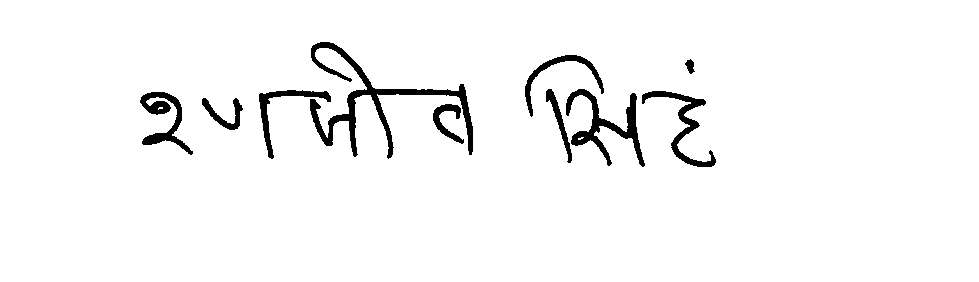 रणजीव सिहं